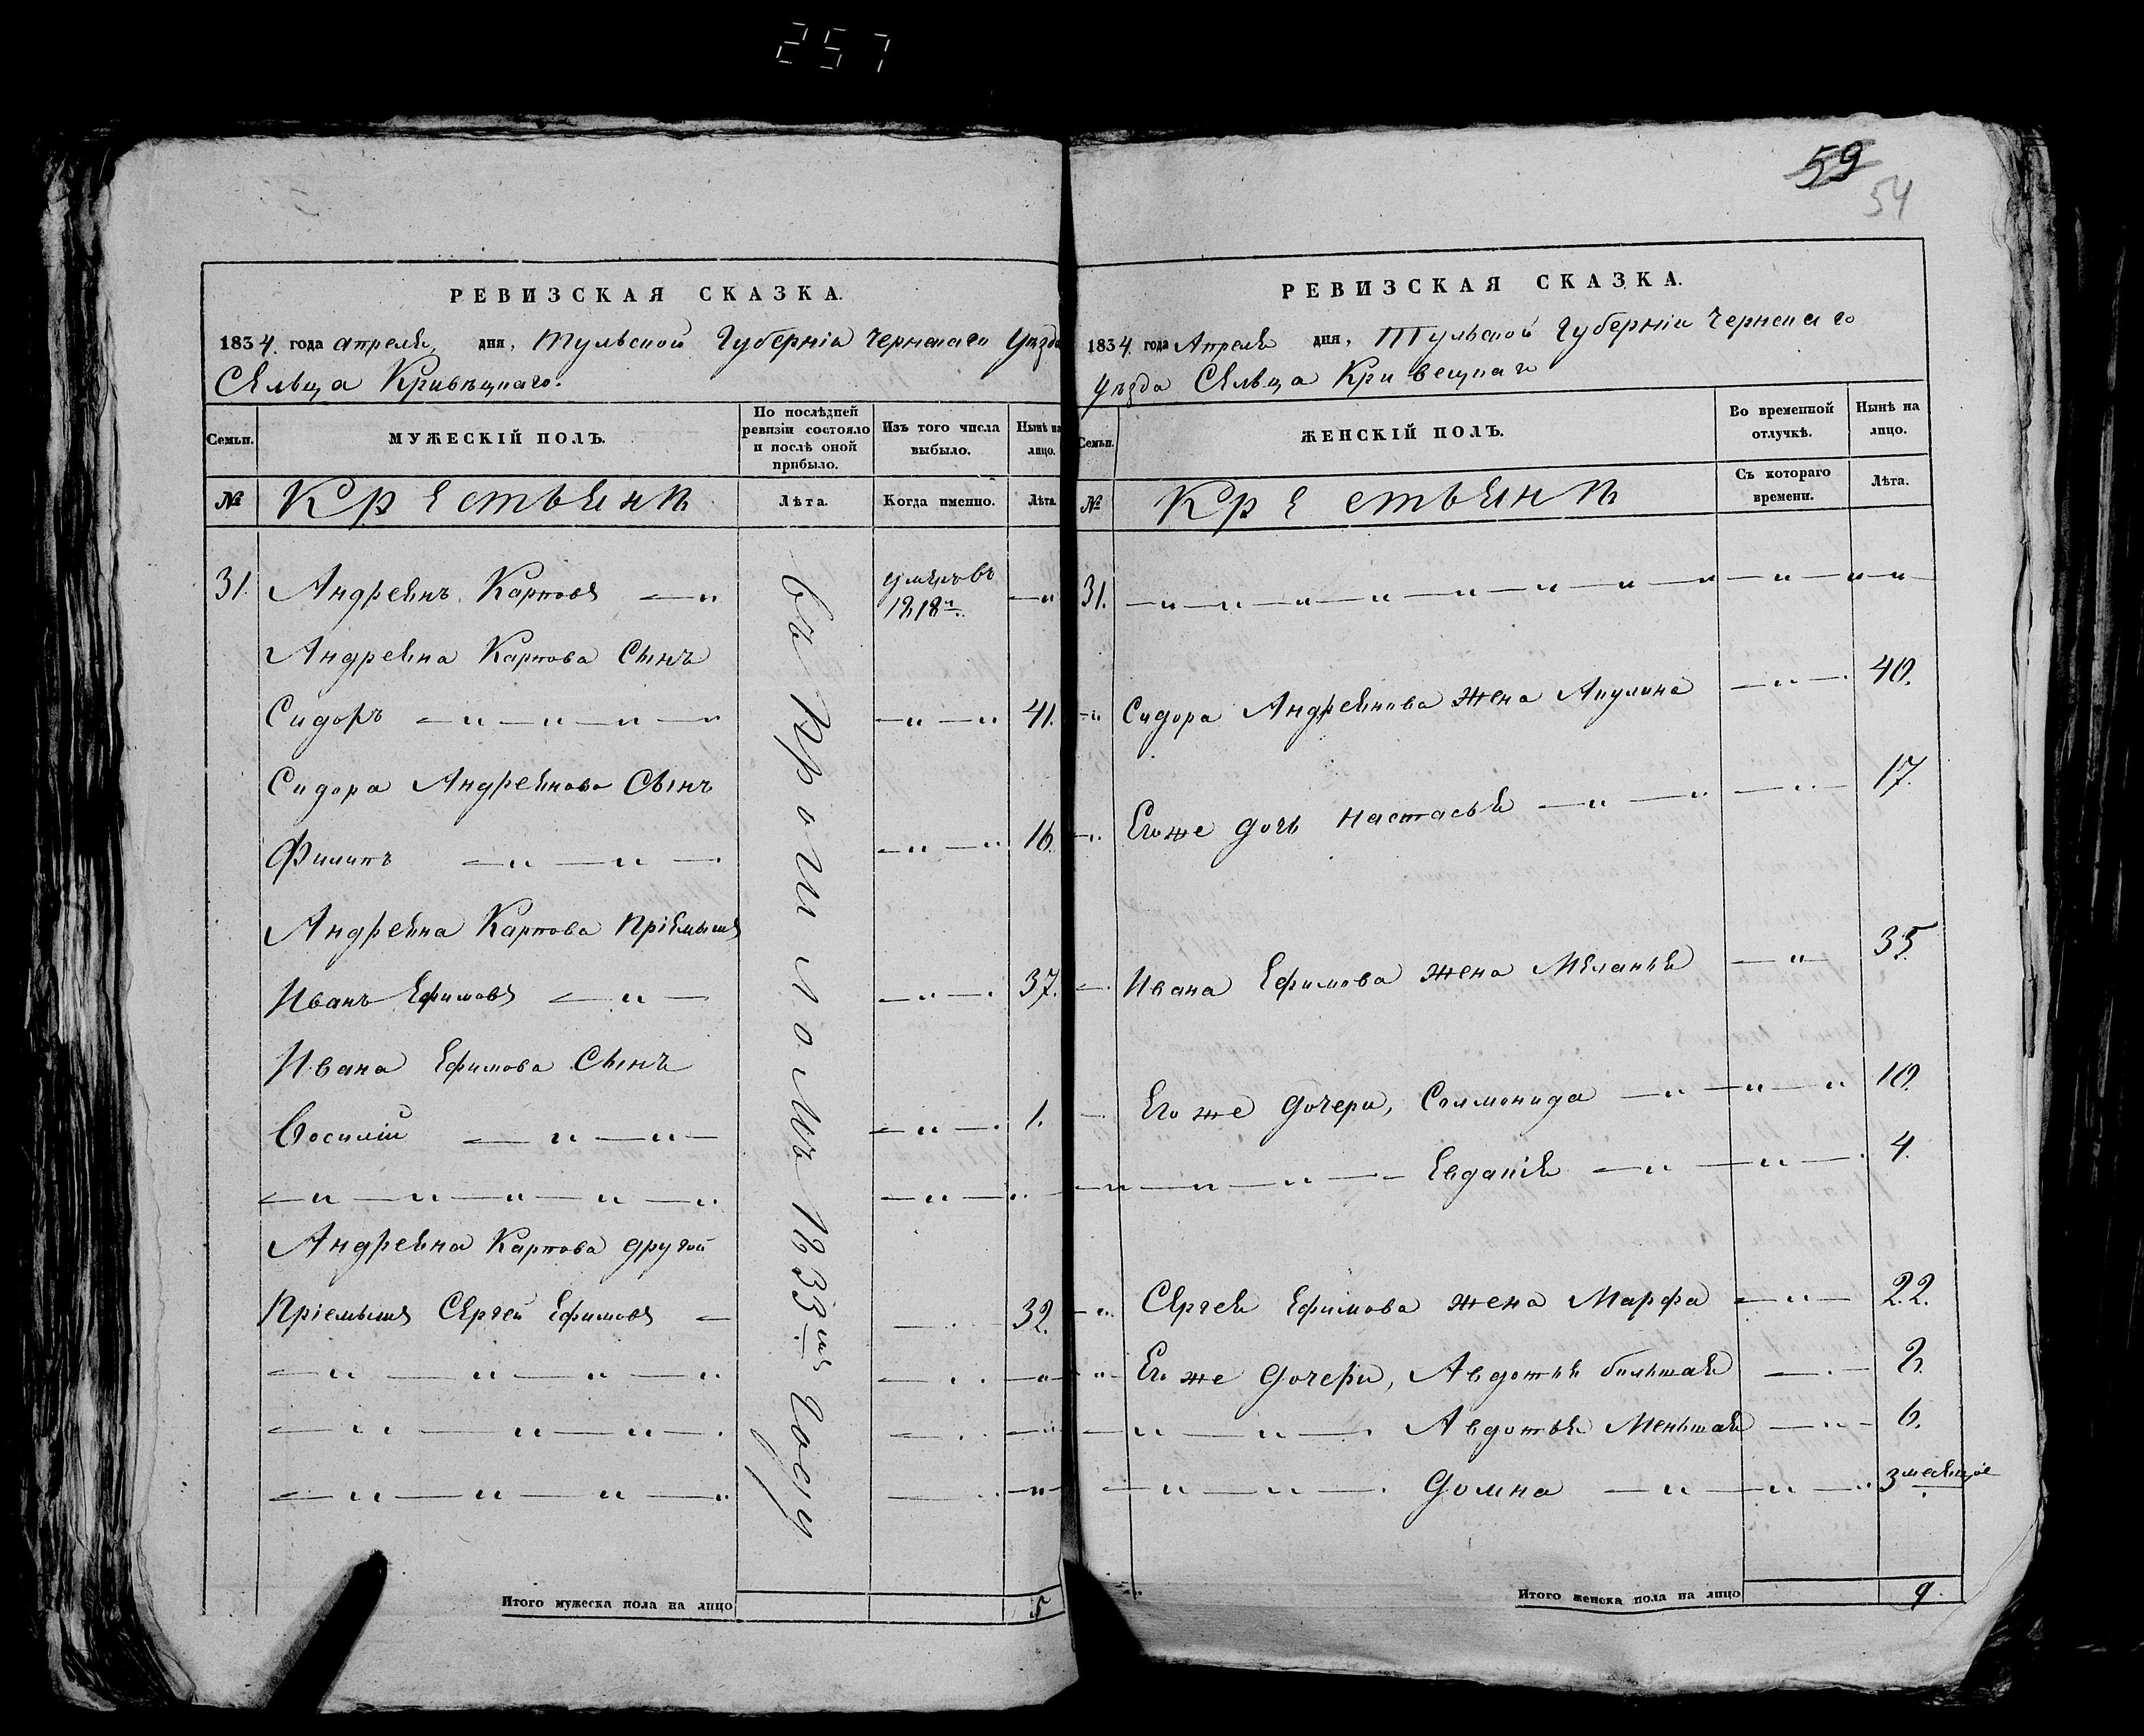 257
РЕВИЗСКАЯ СКАЗКА.
1834. года апреля дня, Тульской Губернiи Чернскаго Уѣзда
Сельца Кривѣцкаго.
Семьи.
МУЖЕСКIЙ ПОЛЪ.
По послѣдней ревизiи состояло и послѣ оной прибыло.
Изъ того числа выбыло.
Нынѣ на лицо.
№
Крестьянѣ
Лѣта.
Когда именно.
Лѣта.
31. Андреянъ Карповъ
умеръ въ 1818
Андреяна Карпова Сынъ
Сидоръ 41.
Сидора Андреянова Сынъ
Филипъ 16.
Андреяна Карпова Прiемышъ
Иванъ Ефимовъ 37.
Ивана Ефимова Сынъ
Василiй 1.
Андреяна Карпова другой
Прiемышъ Сергей Ефимовъ 32.
1833 году
Итого мужеска пола на лицо 5
59
54
РЕВИЗСКАЯ СКАЗКА.
1834. года Апреля дня, Тульской Губернiи Чернскаго
Уѣзда Сельца Кривецкаго
Семьи.
ЖЕНСКIЙ ПОЛЪ.
Во временной отлучкѣ.
Нынѣ на лицо.
№
Крестьянѣ
Съ котораго времени.
Лѣта.
31.
Сидора Андреянова жена Акулина 40.
Его же дочь Настасья 17.
Ивана Ефимова жена Меланья 35.
Его же дочери, Соломонида 10.
Евдакiя 4.
Сергея Ефимова жена Марфа 22.
Его же дочери, Авдотья большая
Авдотья Меньшая 6.
Домна 3 месяцов
Итого женска пола на лицо 9.